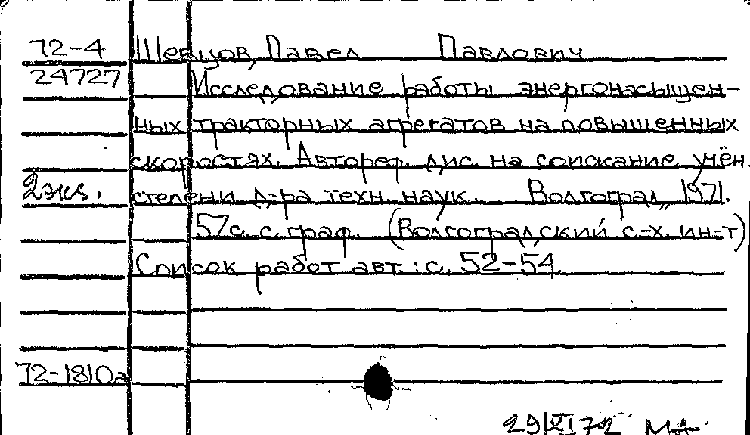 72-4 Шевцов, Павел Павлович
24727 Исследование работы энергонасыщен-
ных тракторных агрегатов на повышенных
скоростях. Автореф. дис. на соискание учён.
2экз. степени д-ра техн. наук. Волгоград, 1971.
57с. с граф. (Волгоградский с.-х. ин-т)
Список работ авт.: с. 52-54
72-1810а
29/XI 72